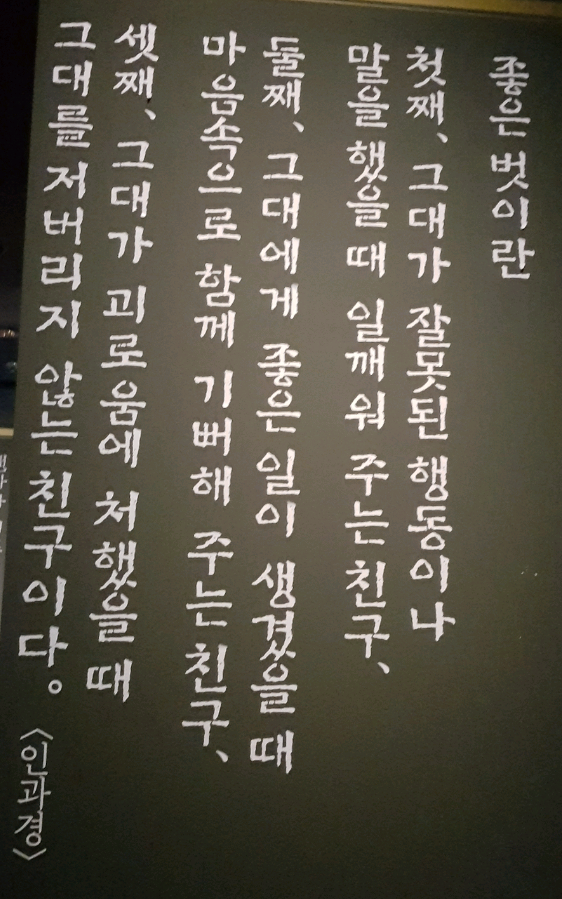 좋은 벗이란
첫째、그대가 잘못된 행동이나
말을 했을 때 일깨워 주는 친구、
둘째、그대에게 좋은 일이 생겼을 때
마음속으로 함께 기뻐해 주는 친구、
셋째、그대가 괴로움에 처했을 때
그대를 저버리지 않는 친구이다。
〈인과경〉